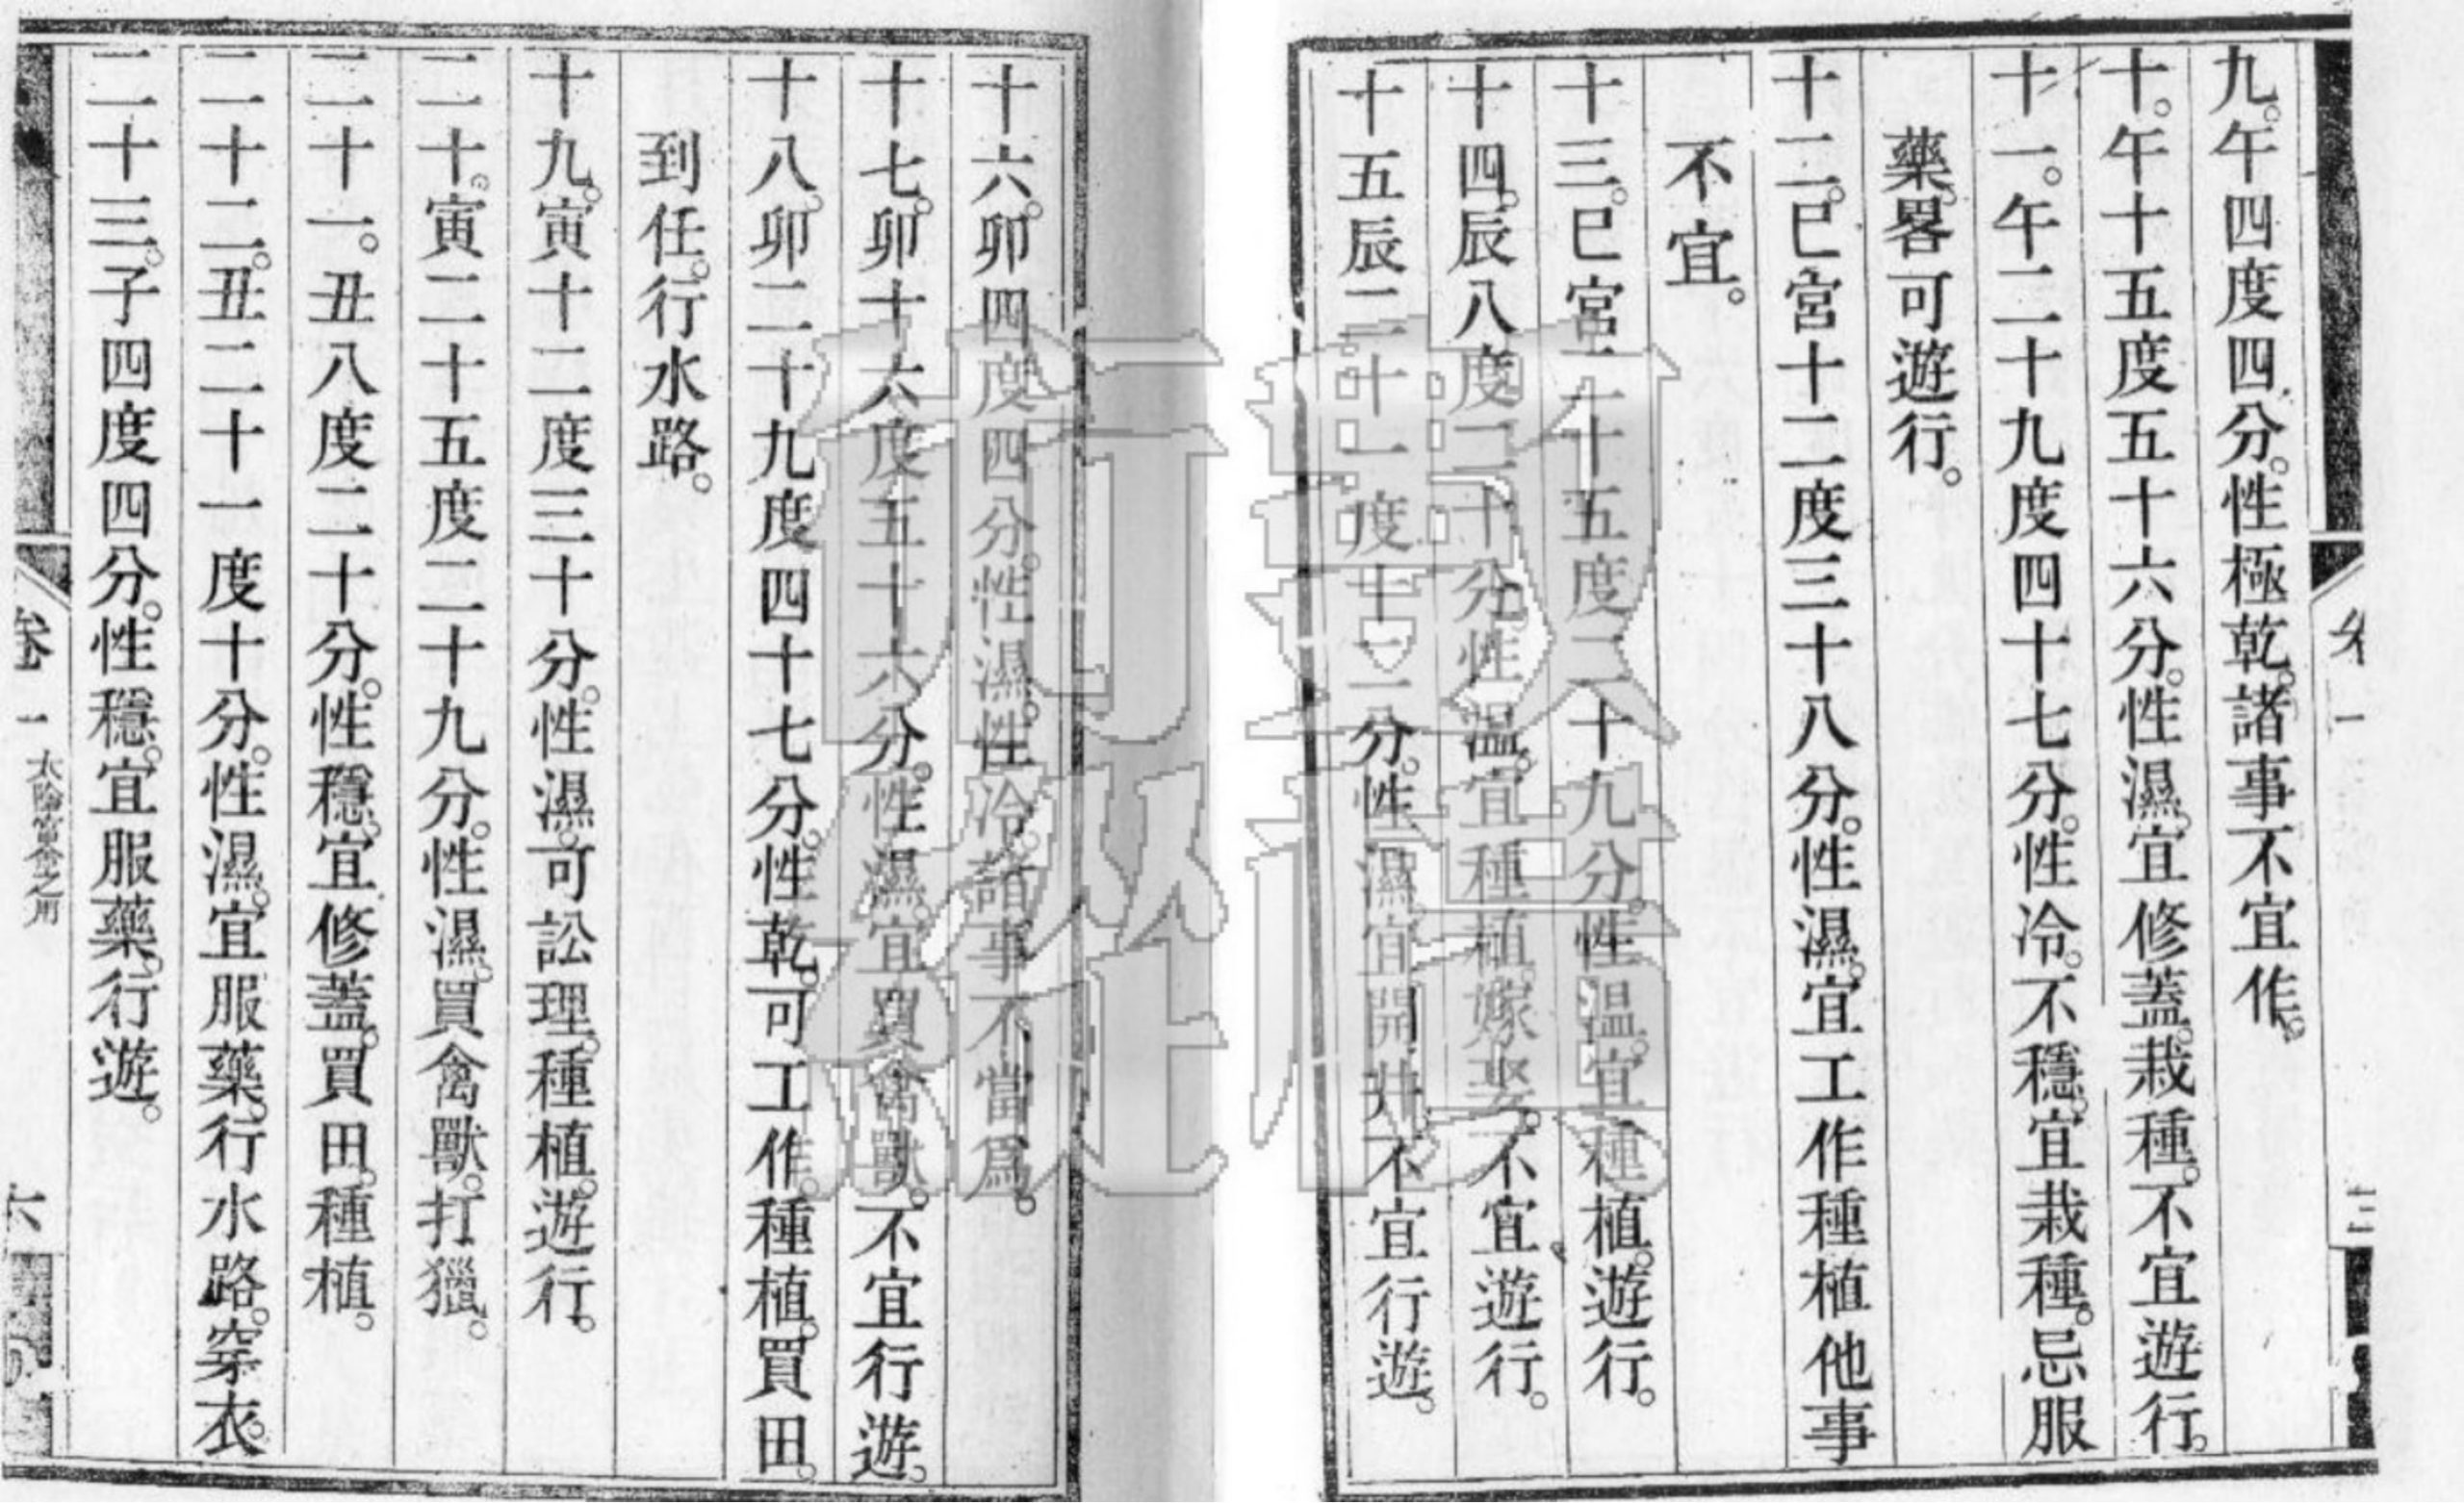 九。午四度四分。性極乾。諸事不宜作。
十。午十五度五十六分。性濕。宜修蓋。栽種。不宜遊行。
十一。午二十九度四十七分。性冷。不穩。宜栽種。忌服
藥。畧可遊行。
十二。巳宮十二度三十八分。性濕。宜工作種植他事
不宜。
十三。巳宮二十五度二十九分。性溫。宜種植。遊行。
十四。辰八度二十分。性溫。宜種植嫁娶。不宜遊行。
十五辰二十一度十二分。性濕宜開井不宜行遊。
十六。卯四度四分。性濕。性冷。諸事不當爲。
十七。卯十六度五十六分。性濕。宜買禽獸。不宜行遊。
十八。卯二十九度四十七分。性乾。可工作。種植。買田。
到任。行水路。
十九。寅十二度三十分。性濕。可訟理。種植。遊行。
二十。寅二十五度二十九分。性濕。買禽獸。打獵。
二十一。丑八度二十分。性穩。宜修蓋。買田。種植。
二十二。丑二十一度十分。性濕。宜服藥。行水路。穿衣。
二十三。子四度四分。性穩。宜服藥。行遊。
卷一 太陰會合之用 六